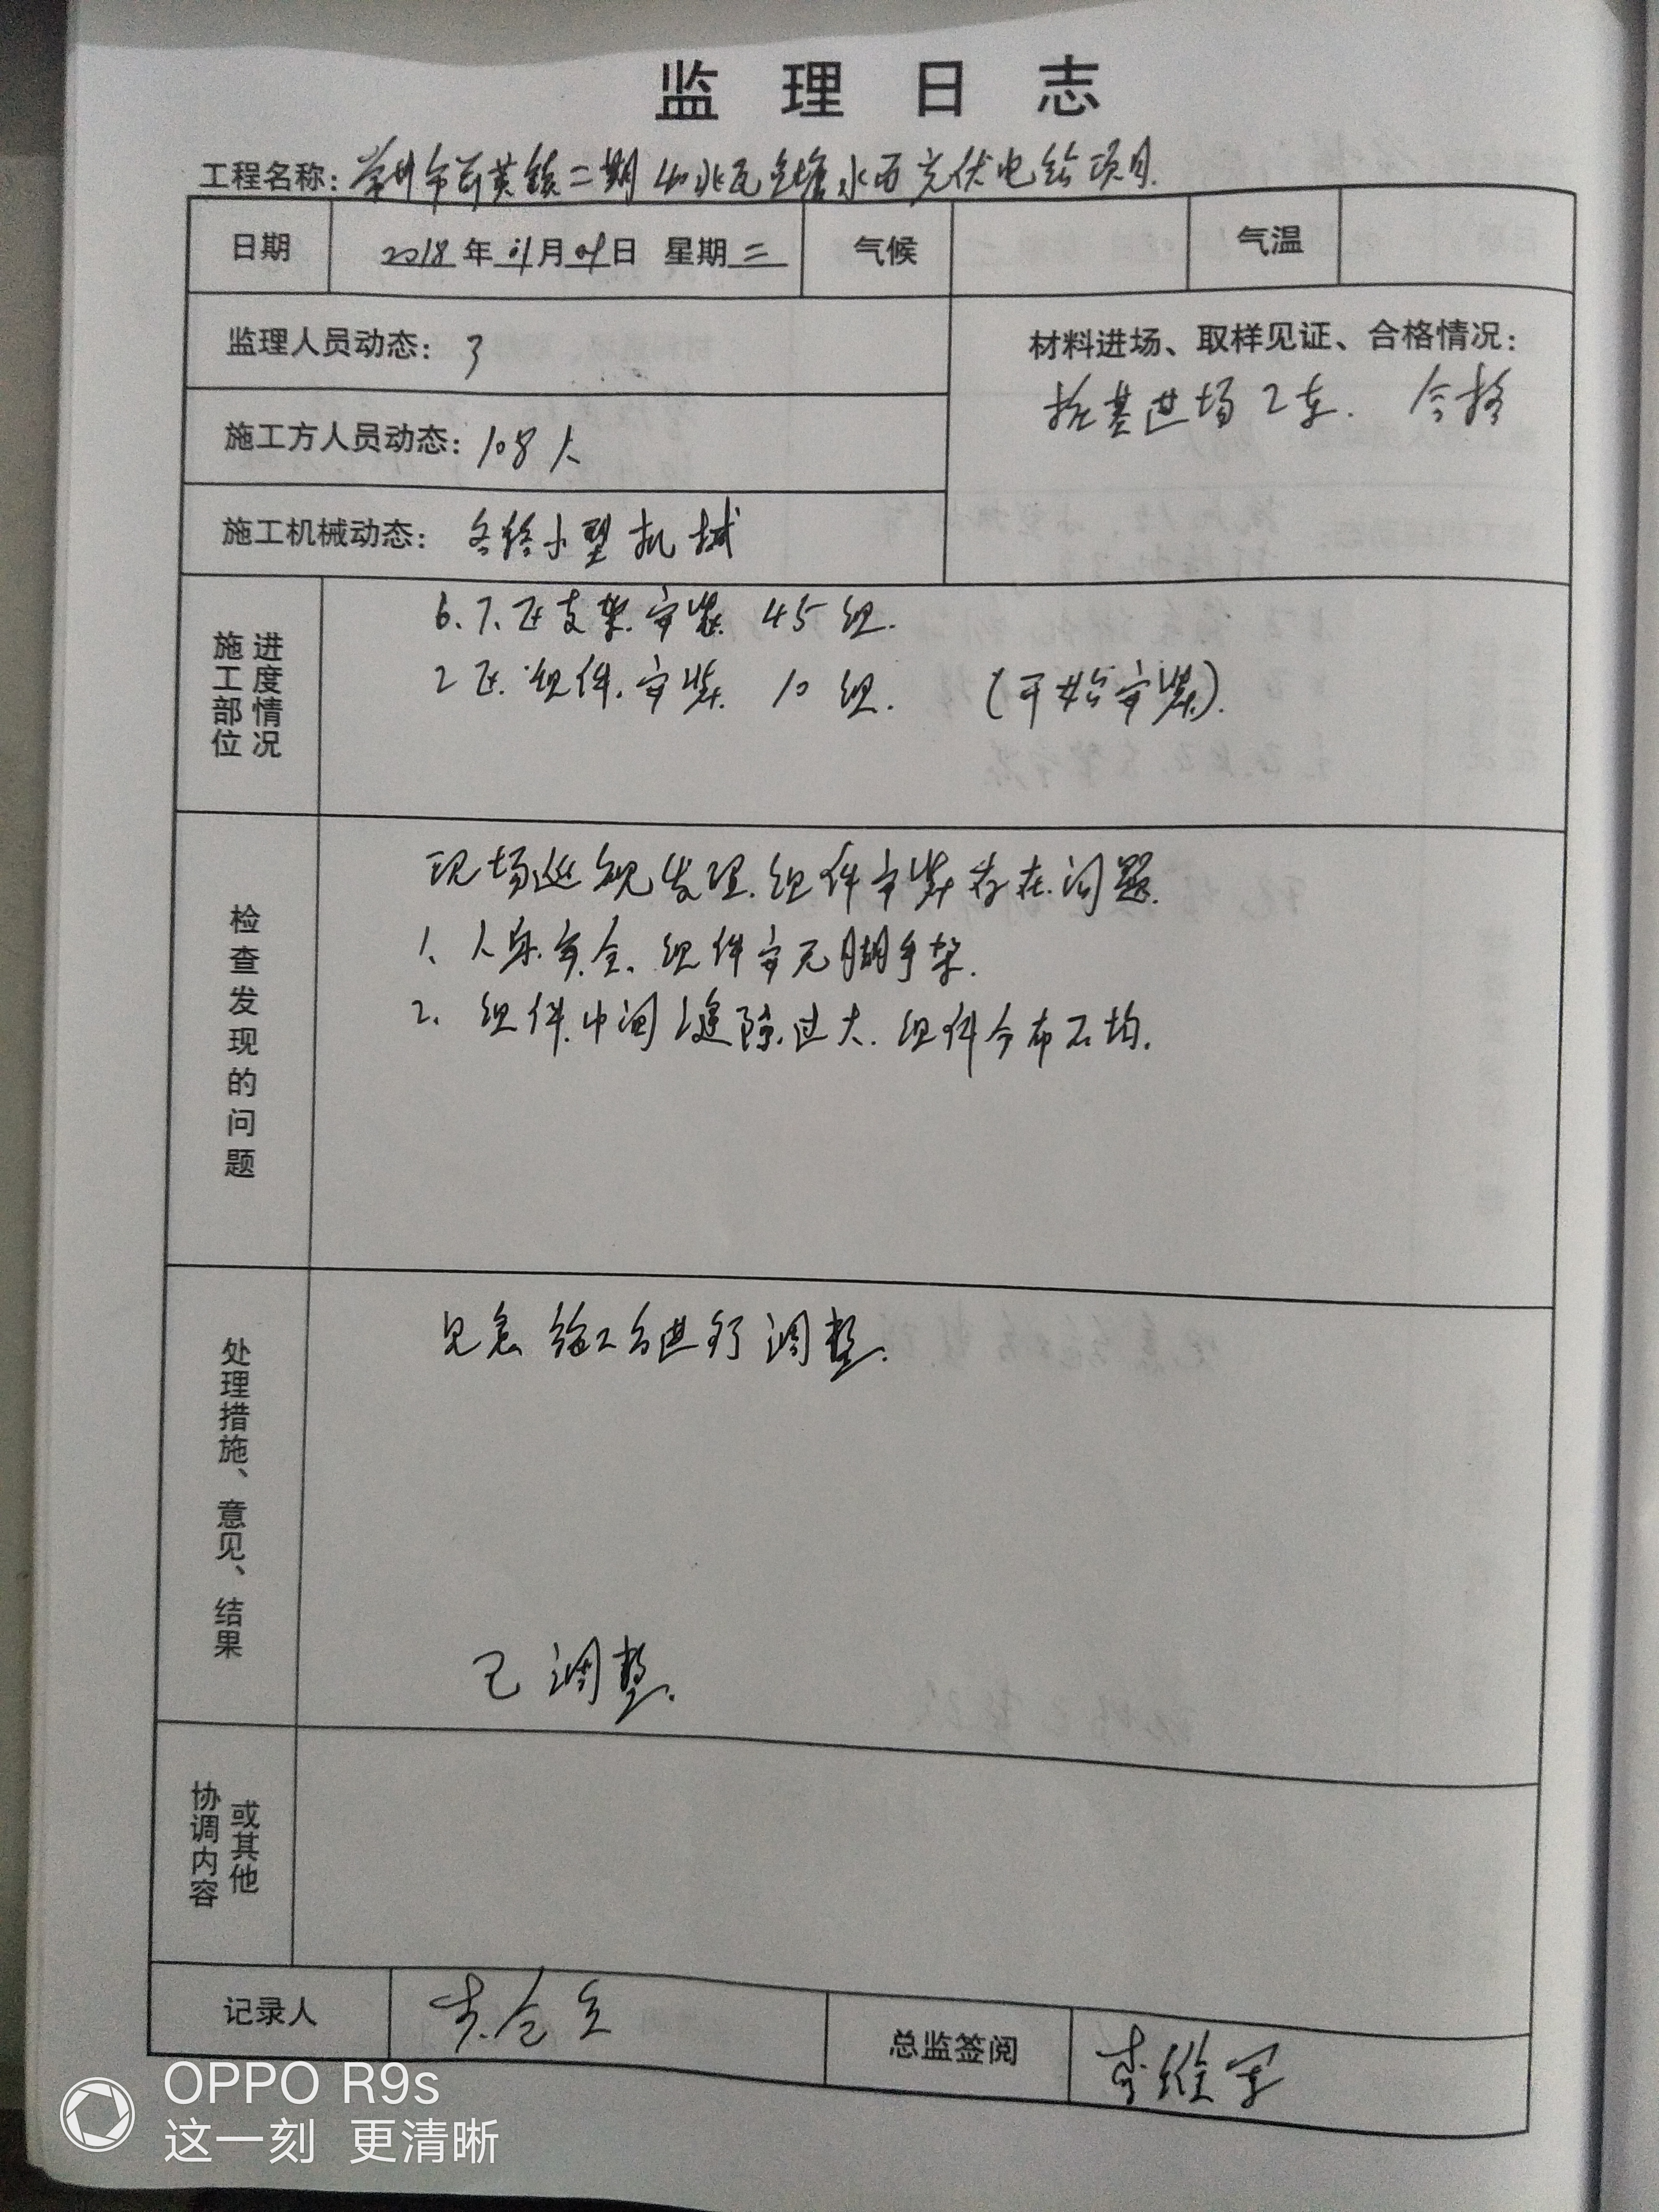 监理日志
工程名称: 常州市 黄镇二期 40兆瓦鱼塘水面光伏电站项目.
日期 2018年 月 日 星期三 气候 气温
监理人员动态: 3
材料进场、取样见证、合格情况:
桩基进场2车. 合格
施工方人员动态: 108人
施工机械动态: 各种小型机械
施工部位进度情况
6.7.区支架.安装. 45组.
2区.组件.安装. 10组. (开始安装).
检查发现的问题
现场巡视发现.组件安装存在问题.
1、人身安全.组件安无脚手架.
2、组件.中间缝隙.过大.组件分布不均.
处理措施、意见、结果
施工方进行调整.
已调整.
协调内容或其他
记录人
总监签阅 李维
OPPO R9s
这一刻 更清晰